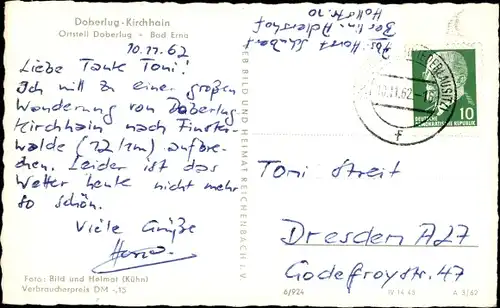 Doberlug-Kirchhain
Ortsteil Doberlug - Bad Erna
10.11.62
Liebe Tante Toni!
Ich will zu einer großen
Wanderung von Doberlug-
Kirchhain nach Finster-
walde (12 km) aufbre-
chen. Leider ist das
Wetter heute nicht mehr
so schön.
Viele Grüße
Horst
Foto: Bild und Heimat (Kühn)
Verbraucherpreis DM -.15
VEB BILD UND HEIMAT REICHENBACH i. V.
Abs. Horst Schubert
Berlin-Adlershof
10.11.62
f
DEUTSCHE
DEMOKRATISCHE REPUBLIK
10
Toni Streit
Dresden A27
Godefroystr. 47
6/924
IV-14-45
A 3/62